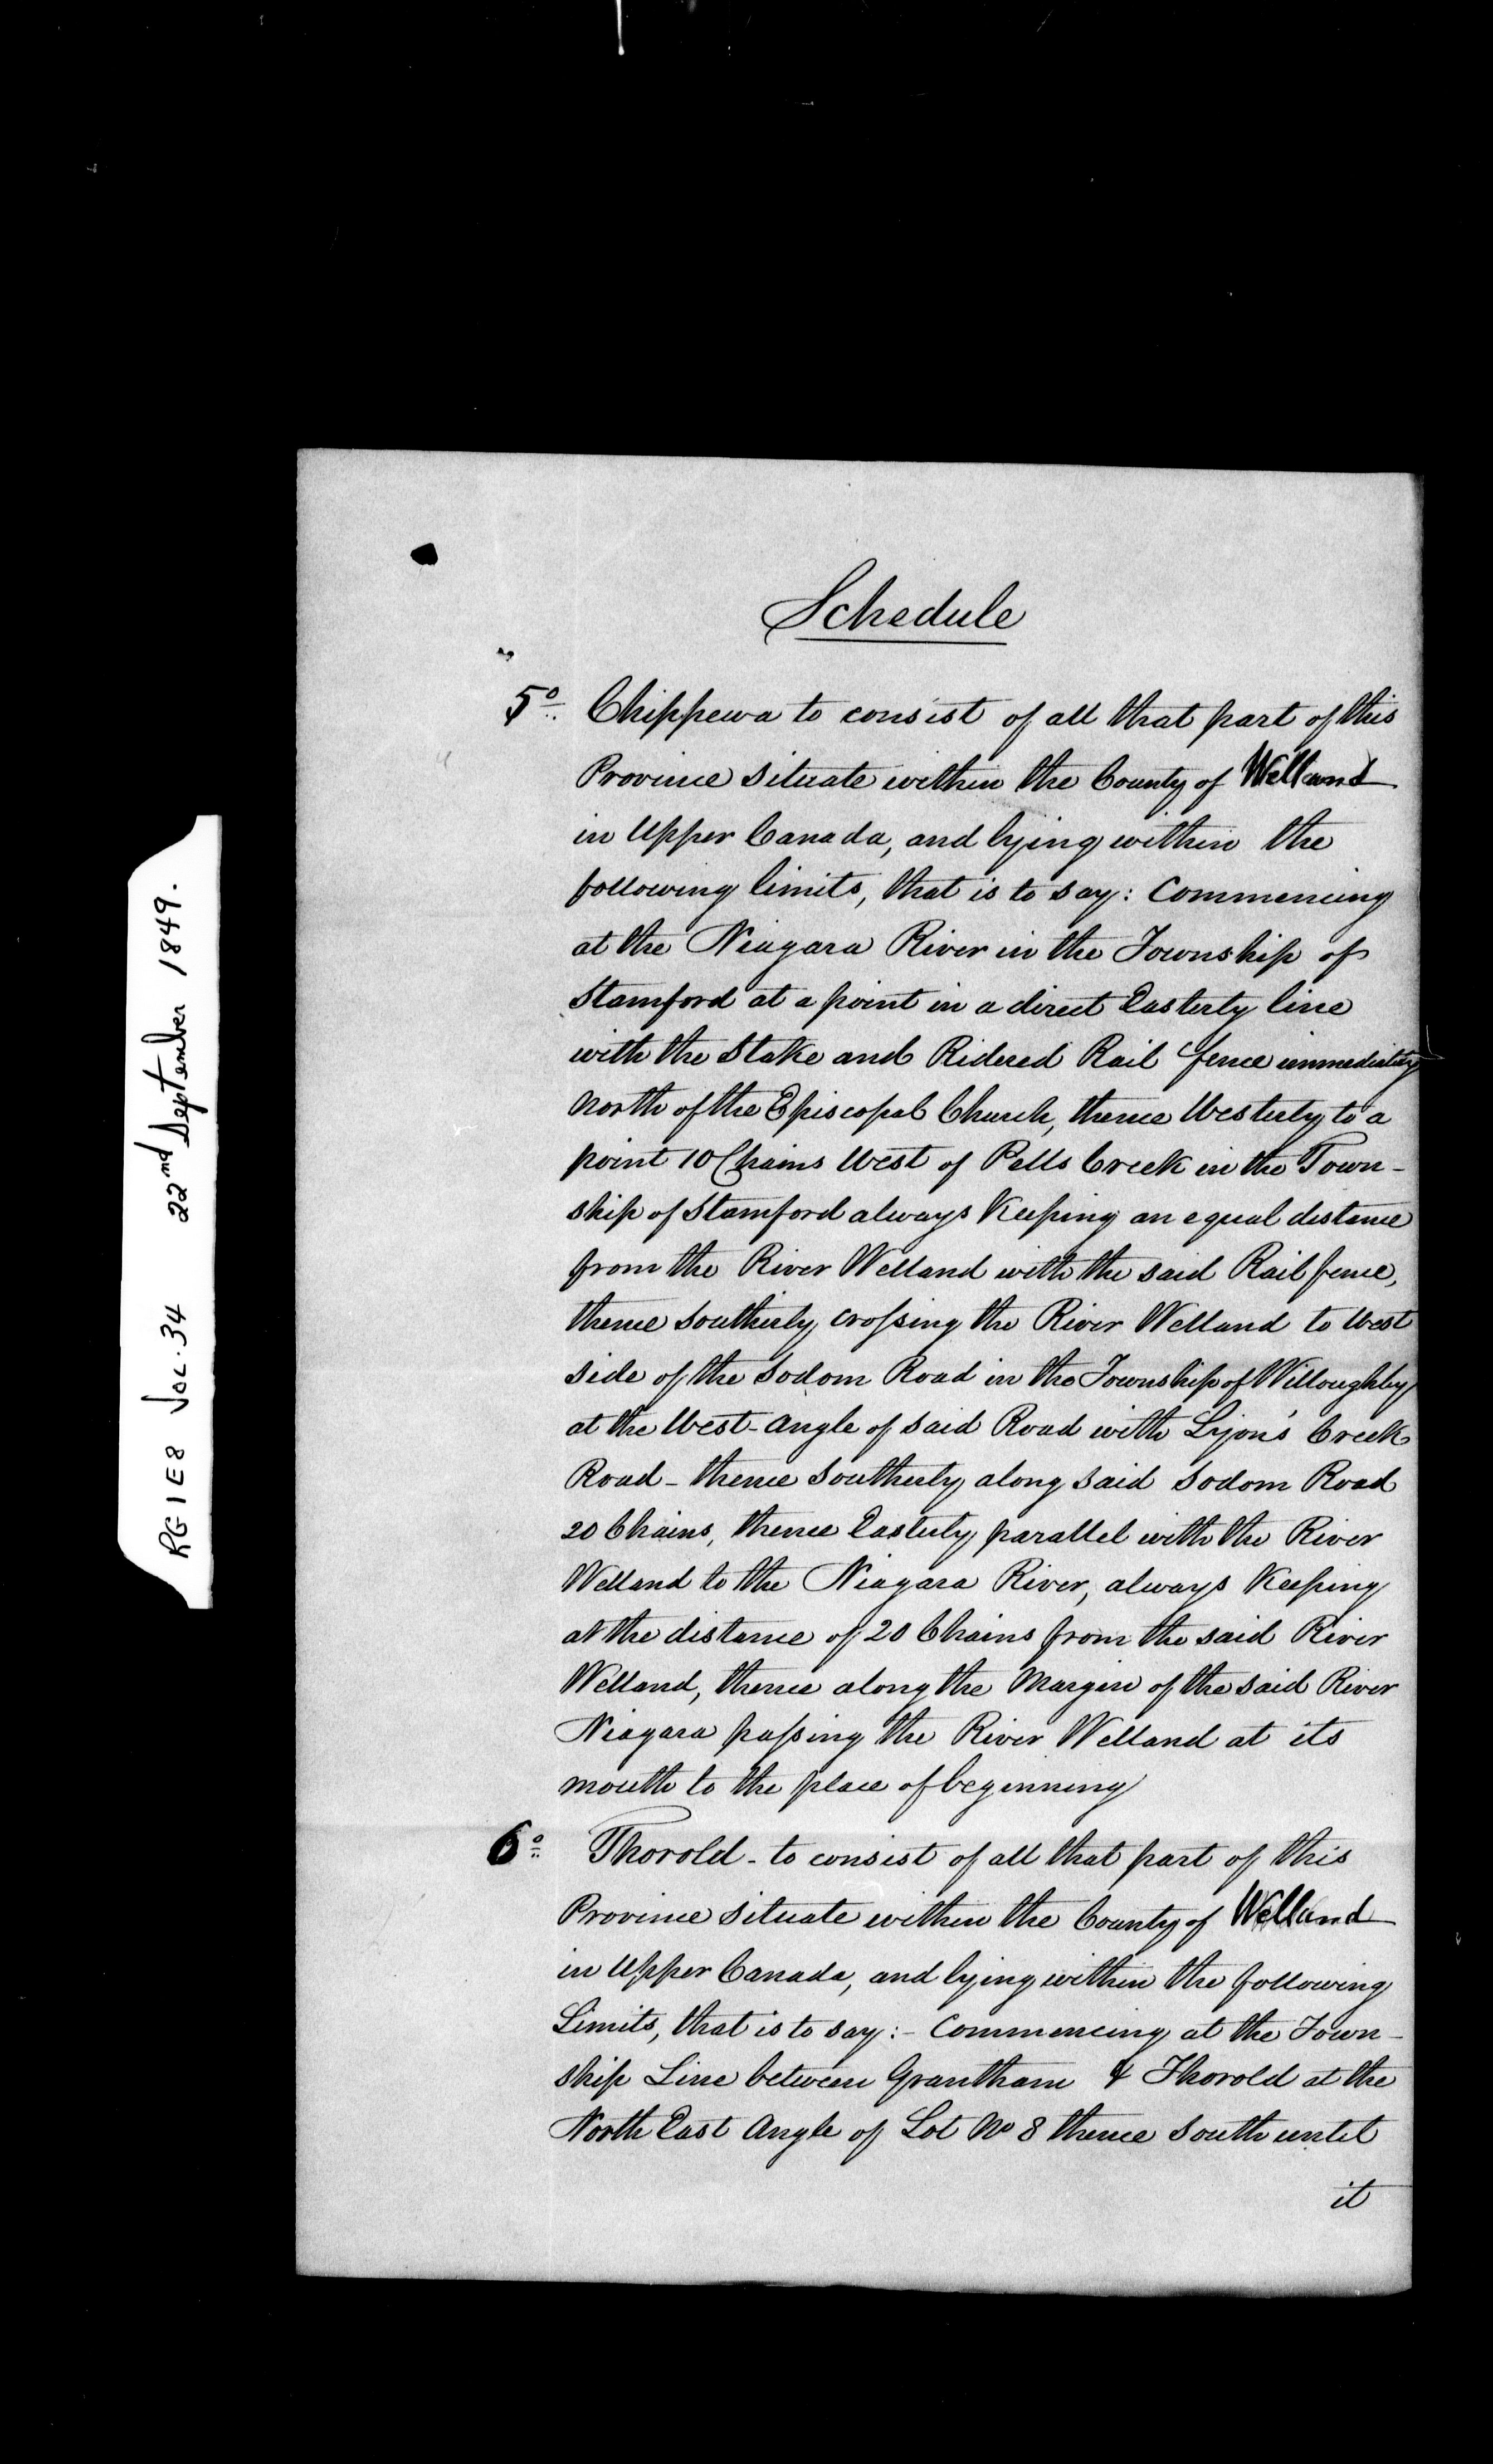 RG 1 E8 Vol. 34 22nd September 1849.
Schedule
5o. Chippewa to consist of all that part of this
Province situate within the County of Welland
in Upper Canada, and lying within the
following limits, that is to say: Commencing
at the Niagara River in the Township of
Stamford at a point in a direct Easterly line
with the Stake and Ridered Rail fence immediately
North of the Episcopal Church, thence Westerly to a
point 10 Chains West of Pells Creek in the Town-
ship of Stamford always Keeping an equal distance
from the River Welland with the said Rail fence,
thence southerly crossing the River Welland to West
side of the Sodom Road in the Township of Willoughby
at the West-Angle of said Road with Lyon's Creek
Road - thence Southerly along said Sodom Road
20 Chains, thence Easterly parallel with the River
Welland to the Niagara River, always Keeping
at the distance of 20 Chains from the said River
Welland, thence along the Margin of the said River
Niagara passing the River Welland at its
mouth to the place of beginning
6o. Thorold - to consist of all that part of this
Province situate within the County of Welland
in Upper Canada, and lying within the following
Limits, that is to say:- Commencing at the Town-
ship Line between Grantham & Thorold at the
North East Angle of Lot No 8 thence South until
it